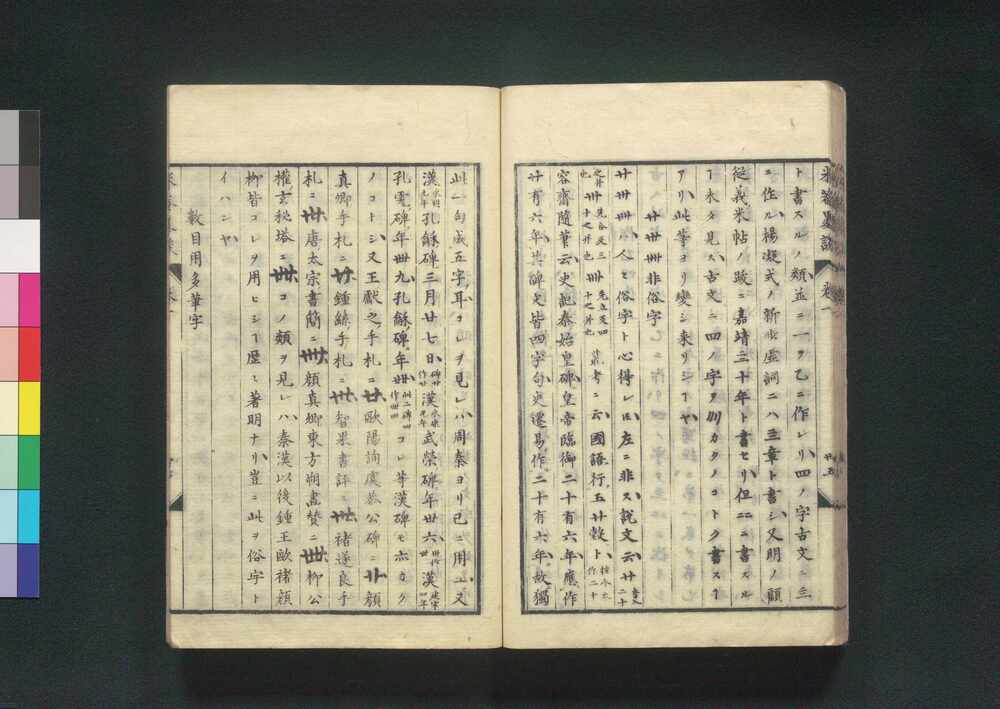 米菴墨談 巻一
ト書スルノ類並ニ一ヲ乙ニ作レリ四ノ字古文ニ三
ニ作ル楊凝式ノ新步虚詞ニハ三章ト書シ又明ノ顧
従義米帖ノ跋ニ嘉靖三十年ト書セリ但二ニ書スル
丁未タ見ス古文ニ四ノ字ヲ カクノコトク書ス丁
アリ此筆ヨリ變シ来リシニヤ
廿卅卌非俗字
廿卅卌ハ人々俗字ト心得レ𪜈左ニ非ス説文云廿
二十
卅
卌
叢考ニ云國語行玉廿瑴ト
作二十
容齋隨筆云史記秦始皇碑皇帝臨御二十有六年應作
廿有六年其碑文皆四字句史遷易作二十有六年故獨
此一句成五字耳コレヲ見レハ周秦ヨリ已ニ用ユ又
漢
孔龢碑三月廿七日
漢
武榮碑年卅六
漢
孔宙碑年卌九孔龢碑年卌
コレ等漢碑モ亦カク
ノコトシ又王獻之手札ニ廿歐陽詢虞恭公碑ニ廿顔
真卿手札ニ廿鍾繇手札ニ卅智果書評ニ卅褚遂良手
札ニ卅唐太宗書簡ニ卌顔真卿東方朔畫賛ニ卌柳公
權玄秘塔ニ卌コノ類ヲ見レハ秦漢以後鍾王歐褚顔
柳皆コレヲ用ヒシ丁歴々著明ナリ豈ニ此ヲ俗字ト
イハンヤ
數目用多筆字